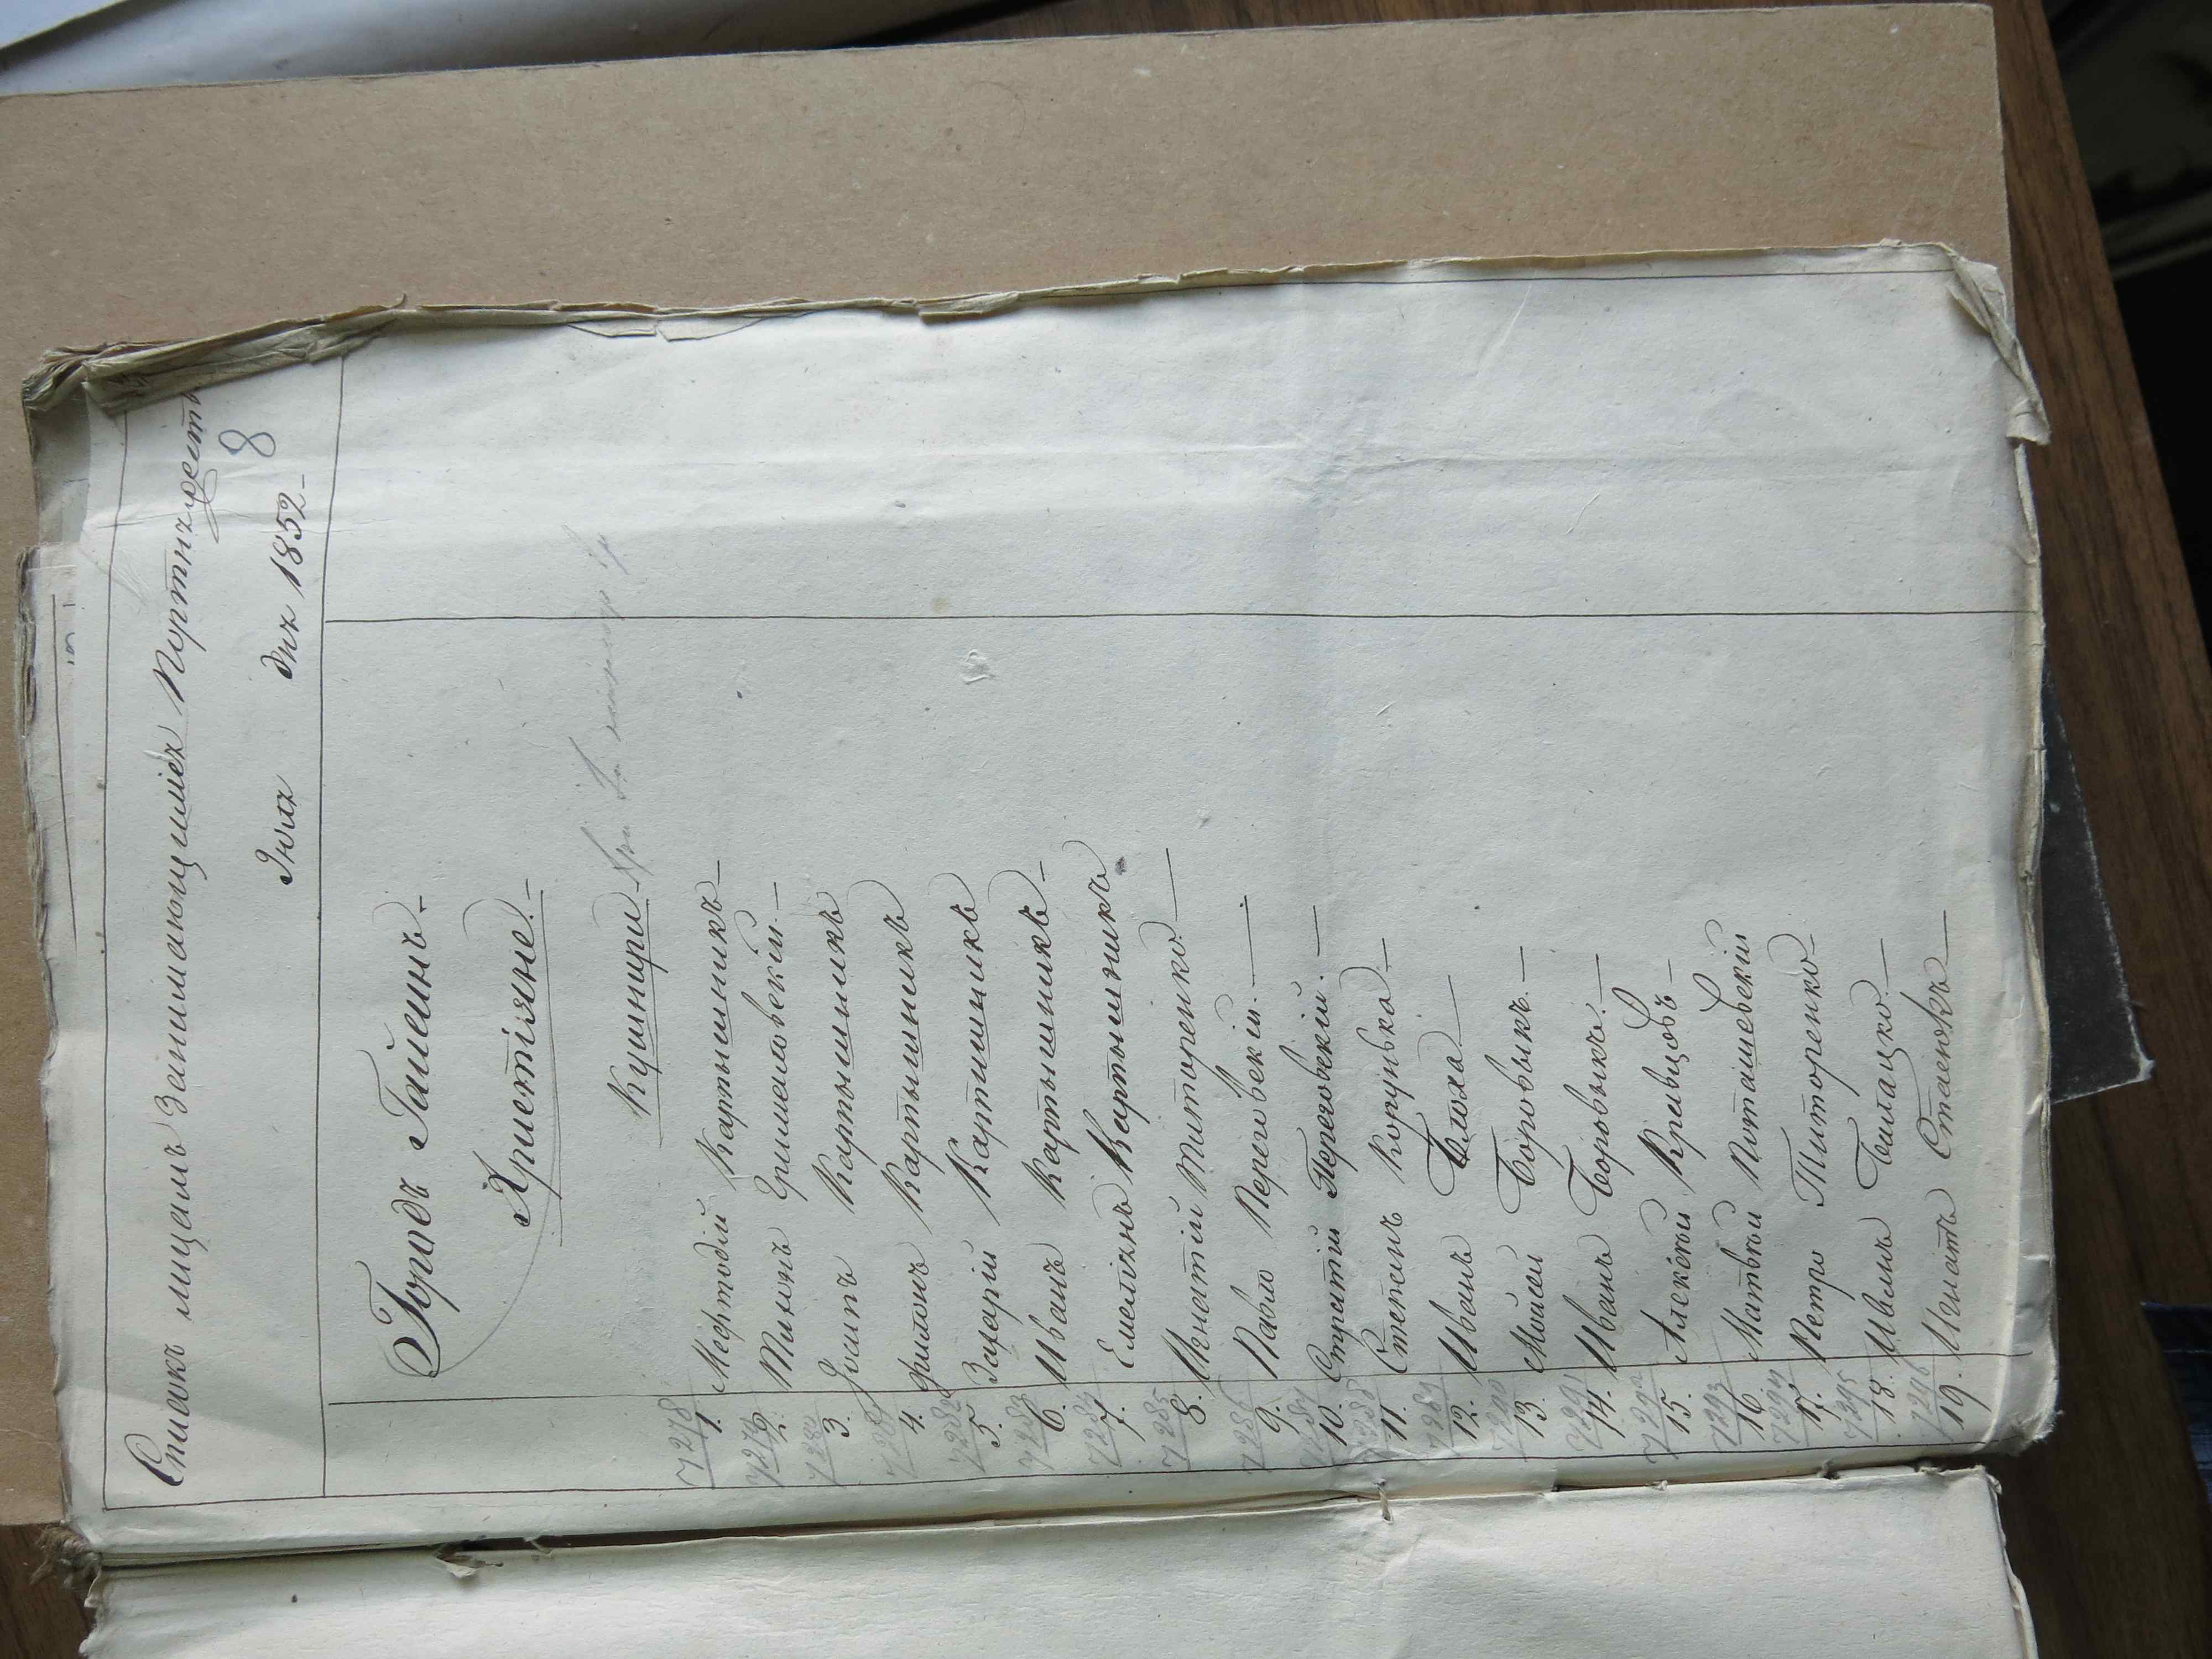 Списокъ лицамъ Занимающимся Портныхъ
8
Дня 1852
Городъ Гайсинъ
Христіяне.
Кушнири
7278
1. Мефтодій Картышникъ
7279
2. Тихонъ
7280
3. Іосипъ Картышникъ
7281
4. Филонъ Картышникъ
7282
5. Захарій Картишникъ
7283
6. Иванъ Картышникъ
7284
7. Емеліянъ Картышникъ
7285
8. Игнатій Титоренко
7286
9. Павло Переговскій.
7287
10. Стратій Переговскій.
7288
11. Степанъ
7289
12. Иванъ Блоха
7290
13. Мойсей Боровыкъ.
7291
14. Иванъ Боровыкъ.
7292
15. Алексѣй Кравцовъ
7293
16. Матвѣй Поташевскій
7294
17. Петро Титоренко
7295
18.
7296
19. Игнатъ Стасюкъ